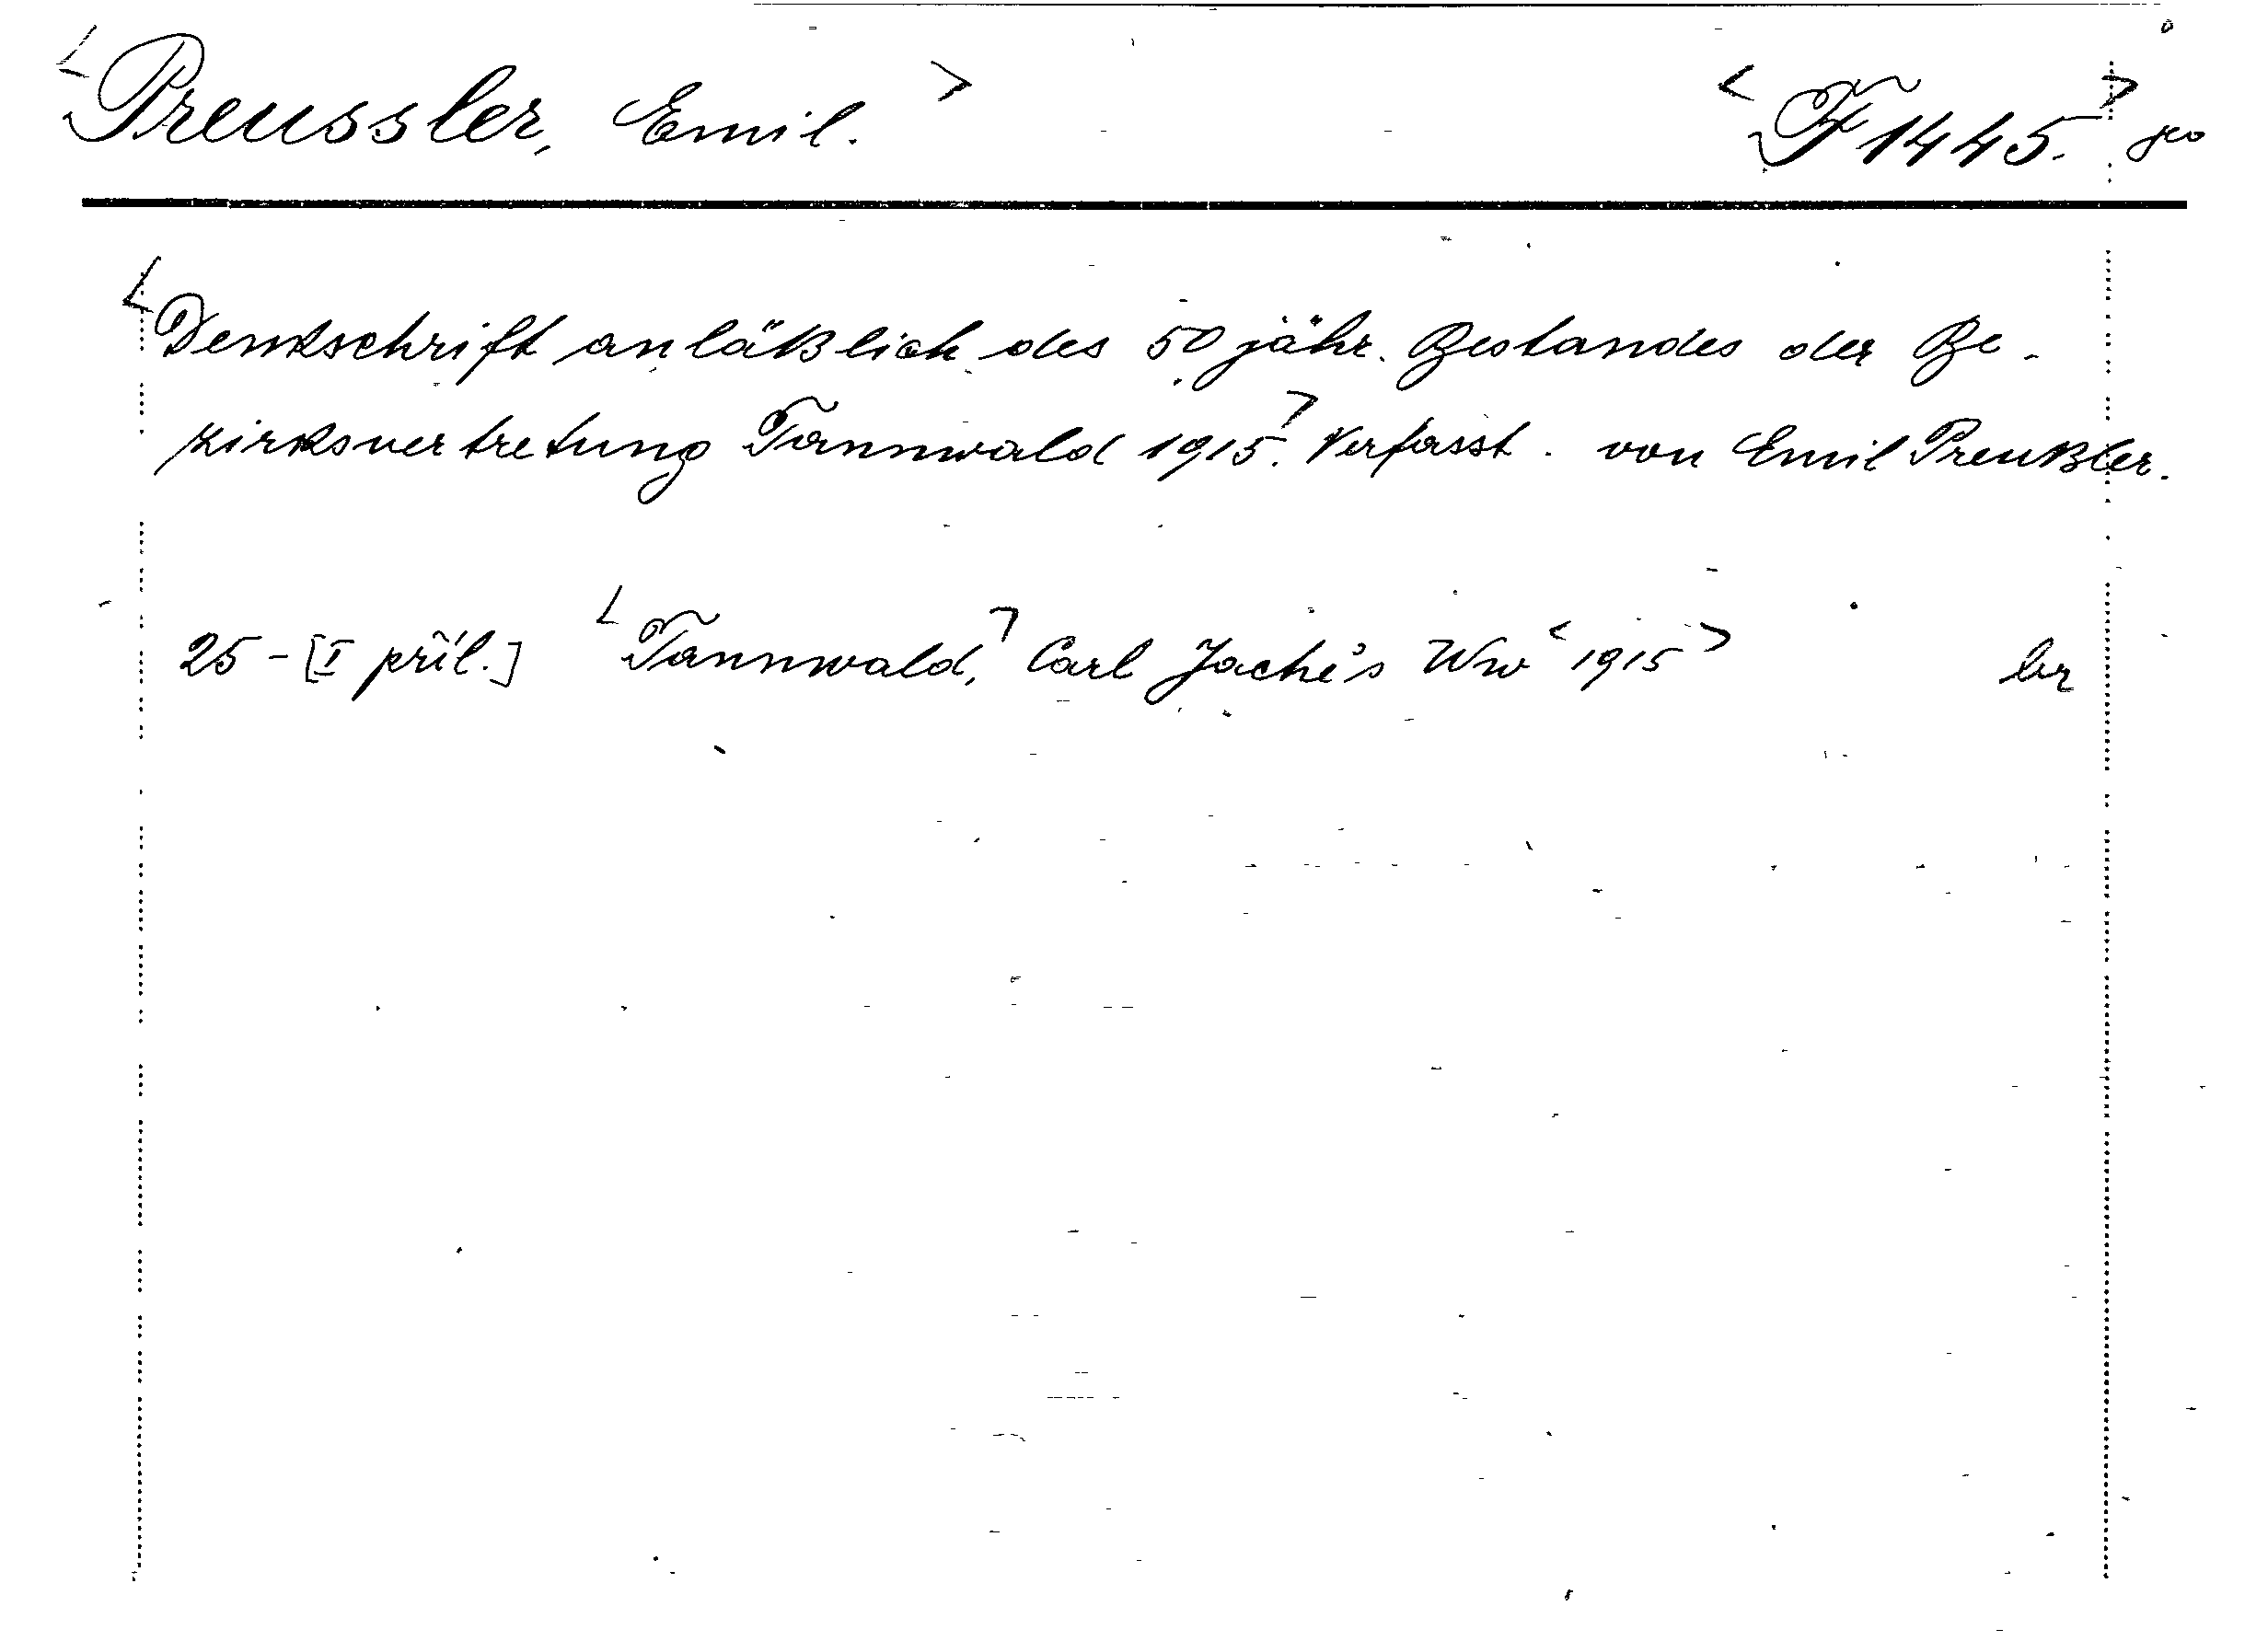 <Preussler, Emil.> <F 1445.> geo
<Denkschrift anläßlich des 50 jähr. Bestandes der Be-
zirksvertretung Tannwald 1915.> Verfasst. von Emil Preußler.
25 - [I příl.] <Tannwald,> Carl Jaché's Ww <1915> br